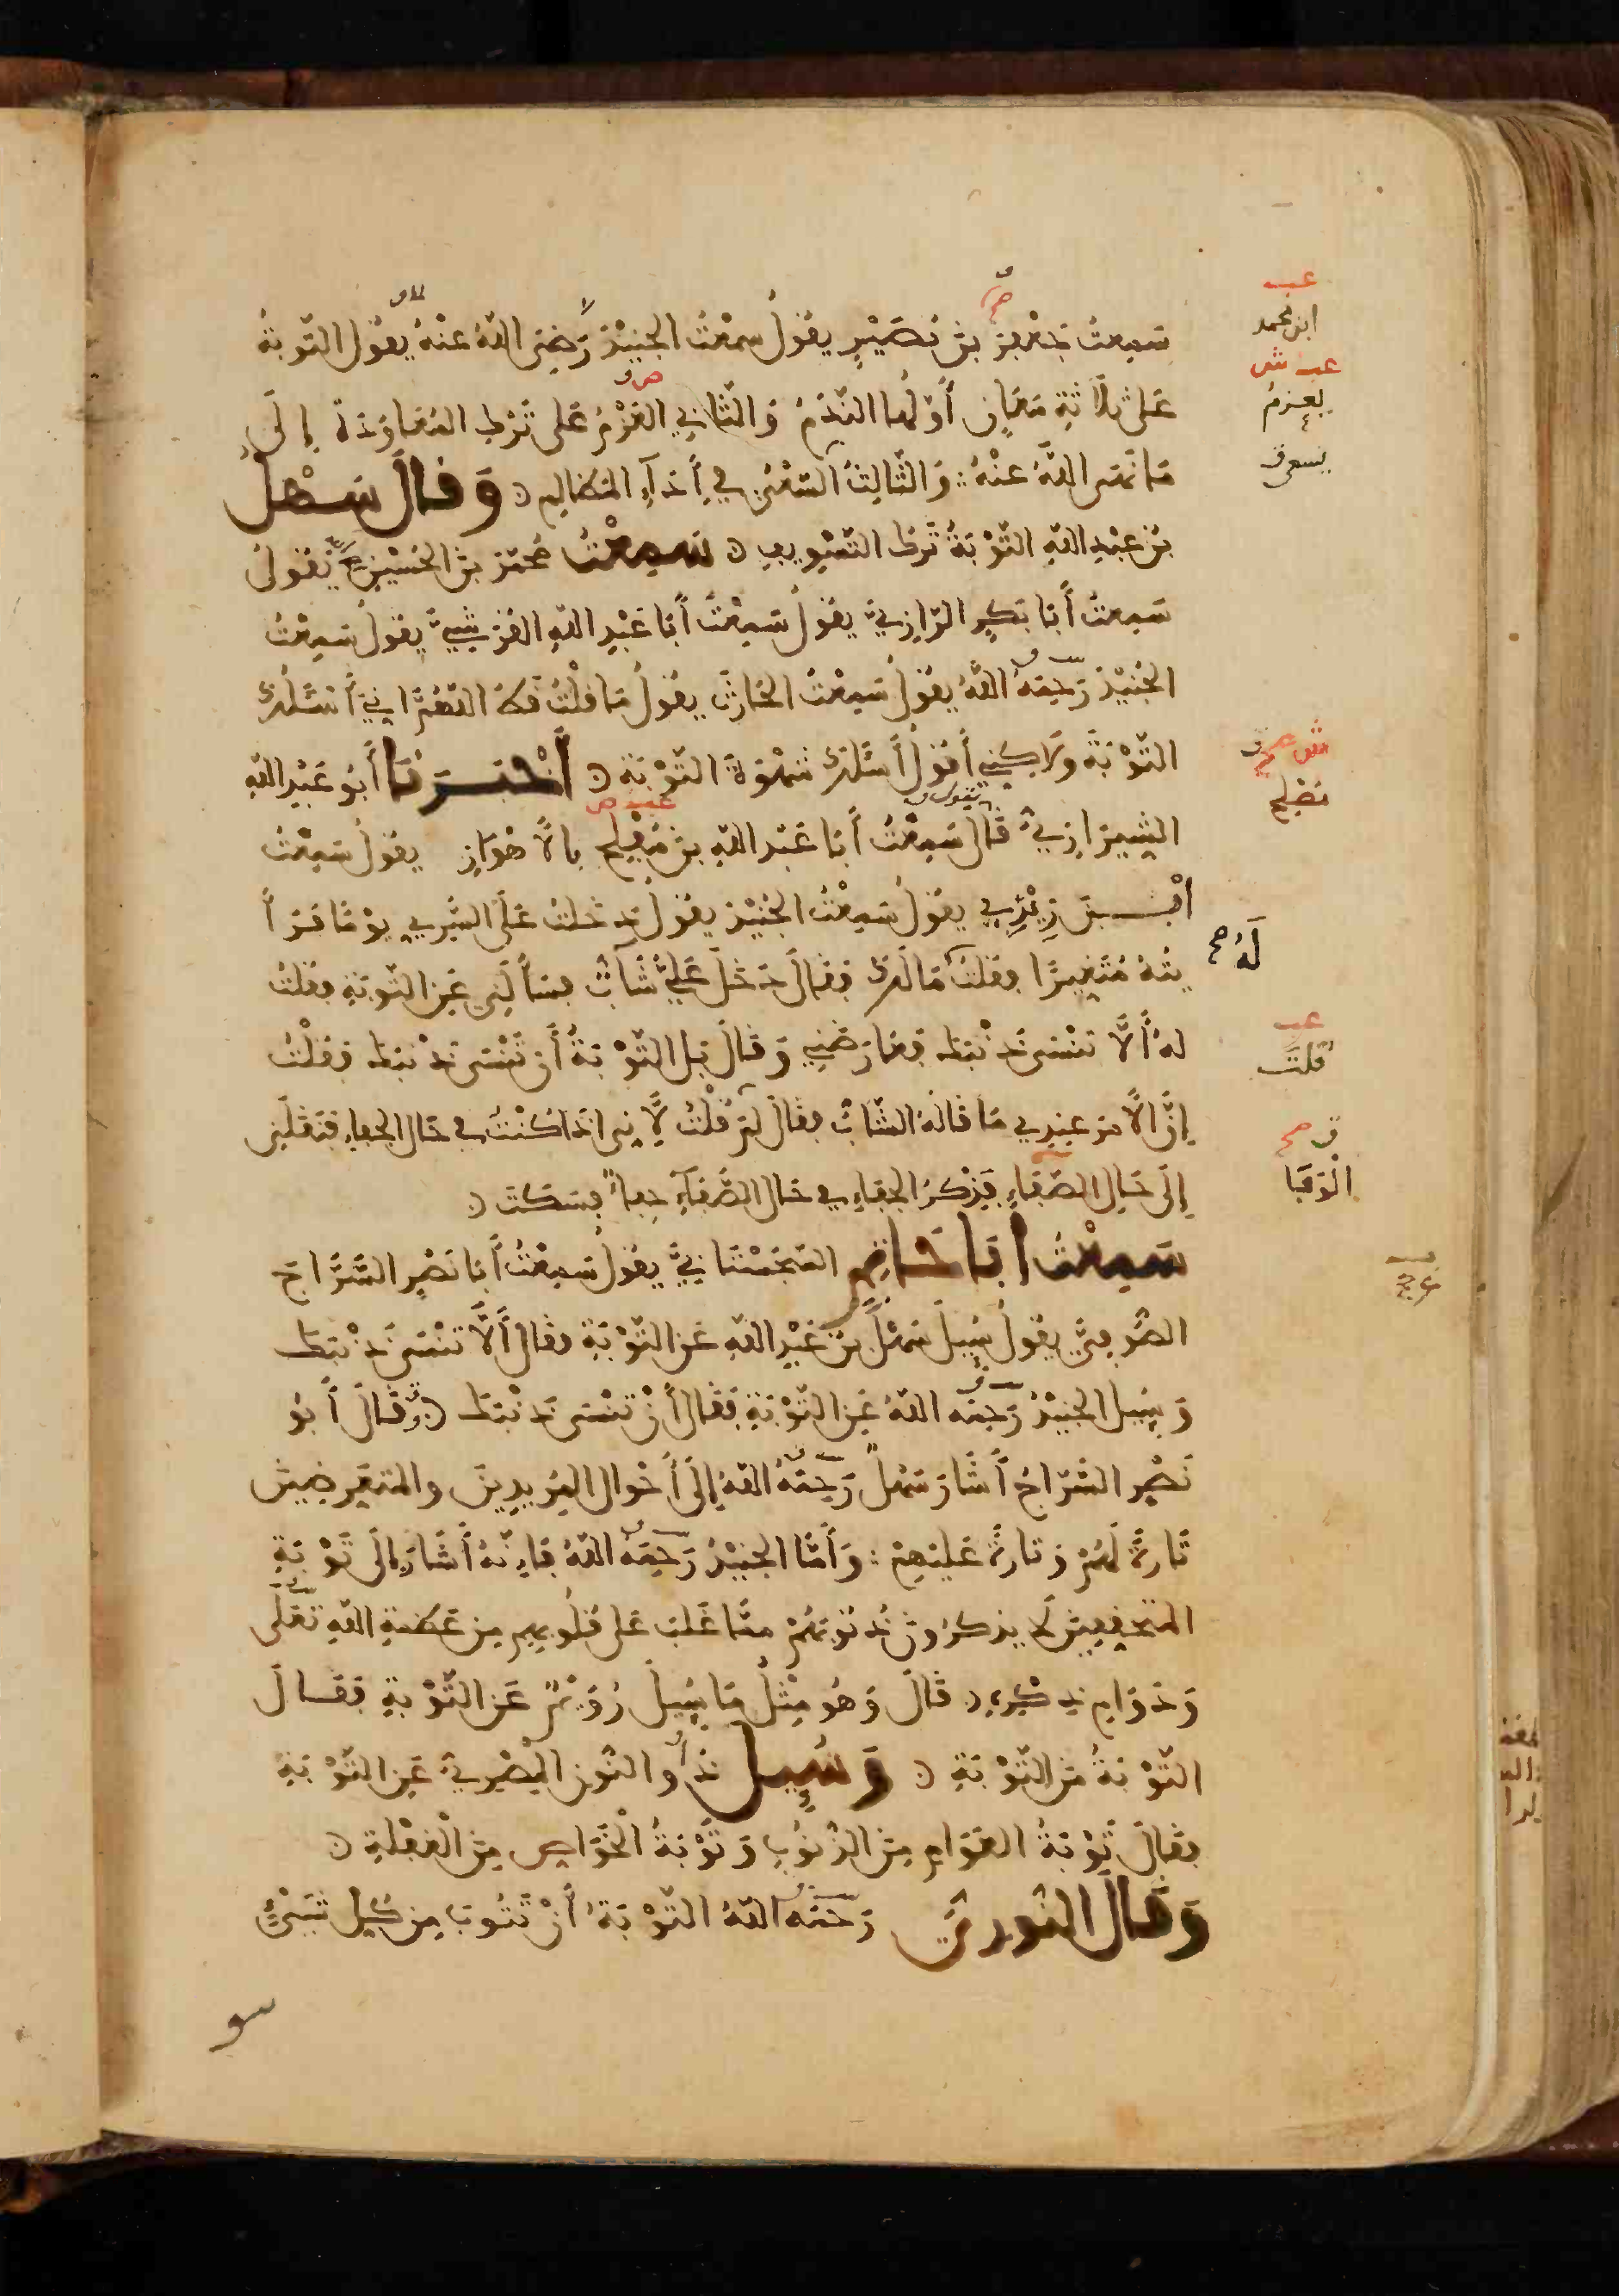 سَمِعتُ جَعْفرَ بنَ نُصَيْرٍ يقُولُ سَمعْتُ الجُنَيْدَ رَضِىَ اللّهُ عنْهُ يقُولُ التّوبَةُ
عَلى ثلَاثةِ مَعَانٍ أَوّلُها النّدَمُ وَالثّانِي العَزْمُ عَلى تَرْكِ المُعَاوَدَةِ إلَى
مَا نَهَى اللّهُ عنْهُ وَالثّالِثُ السّعْيُ في أدَآءِ المَظَالِمِ وَقالَ سَهْلُ
بنُ عبْدِ اللّهِ التّوْبَةُ تَركُ التّسْوِيفِ سَمِعْتُ مُحَمّدَ بنَ الحُسَيْنِ يَقُولُ
سَمِعتُ أَبَا بَكْرٍ الرّازِيَّ يقُولُ سَمِعْتُ أَبَا عَبْدِ اللّهِ القُرَشِيَّ يقُولُ سَمِعْتُ
الجُنَيْدَ رَحِمَهُ اللّهُ يقُولُ سَمِعْتُ الحَارِثَ يقُولُ مَا قلْتُ قَطُّ اللّهُمَّ إنِّي أَسْئَلُكَ
التّوْبَةَ وَلَاكِنِّي أَقُولُ أَسْئَلُكَ شَهْوَةَ التّوْبَةِ أَخْبَرَنَا أَبُو عَبْدِ اللّهِ
الشِّيرَازِيُّ قَالَ سَمِعْتُ أَبَا عَبْدِ اللّهِ بنَ مُفْلِحٍ بِالْأَهْوَازِ يقُولُ سَمِعْتُ
ابْنَ زِيْزِي يقُولُ سَمِعْتُ الجُنَيْدَ يقُولُ دَخلْتُ عَلَى السَّرِيِّ يوْمًا فرَأَ
يتُهُ مُتَغيِّرًا فقلتُ مَا لَكَ فقَالَ دَخلَ عَليَّ شَآبٌّ فسَأَلَنِي عَنِ التّوبَةِ فقلتُ
لهُ أَلَّا تنْسَى ذَنْبَكَ فعَارَضَنِي وَقَالَ بَلِ التّوْبَةُ أَن تَنْسَى ذَنْبَكَ فقلْتُ
إنَّ الْأَمرَ عِندِي مَا قَالَهُ الشّابُّ فقَالَ لِمَ قُلْتُ لِأَنِّي إذَا كُنْتُ في حَالِ الجَفاءِ فنَقَلَنِي
إلَى حَالِ الصّفَاءِ فَذِكرُ الجَفاءِ في حَالِ الصَّفَآءِ جَفاءٌ فسَكَتَ
سَمِعْتُ أَبَا حَاتِمٍ السّجِسْتَانِيَّ يقُولُ سَمِعْتُ أَبَا نَصْرٍ السَّرّاجَ
الصُّوفِيَّ يقُولُ سُئِلَ سَهْلُ بنُ عَبْدِ اللّهِ عَنِ التّوْبَةِ فقَالَ أَلَّا تَنْسَى ذَنْبَكَ
وَسُئِلَ الجُنَيْدُ رَحِمَهُ اللّهُ عَنِ التّوْبَةِ فقَالَ أَنْ تنْسَى ذَنْبَكَ وَقَالَ أَبُو
نَصْرٍ السّرّاجُ أَشَارَ سَهْلٌ رَحِمَهُ اللّهُ إلَى أَحْوَالِ المُرِيدِينَ وَالمتَعَرِّضِينَ
تَارَةً لَهُمْ وَتَارَةً عَليْهِمْ وَأَمَّا الجُنَيْدُ رَحِمَهُ اللّهُ فَإنّهُ أَشَارَ إلَى تَوْبَةِ
المتحَقِّقِينَ لَا يذكُرُونَ ذُنُوبَهُمْ ممّا غَلَبَ عَلَى قُلُوبِهِم مِن عَظَمةِ اللّهِ تَعَلَى
وَدَوَامِ ذِكْرِهِ قَالَ وَهُوَ مِثْلُ مَا سُئِلَ رُوَيْمٌ عَنِ التّوْبةِ فقَالَ
التّوْبَةُ مِنَ التّوْبَةِ وَسُئِلَ ذُو النّونِ المِصْرِيُّ عَنِ التّوْبَةِ
فقَالَ تَوْبَةُ العَوَامِ مِنَ الذّنُوبِ وَتَوْبَةُ الخَوَاصِ مِنَ الغَفْلَةِ
وَقَالَ النُّورِيُّ رَحمَهُ اللّهُ التّوْبَةُ أَنْ تَتُوبَ مِن كلِّ شَيْءٍ
سو
عب
ابن محمد
عب ش
يعزمُ
يسعى
ش صح
مصلح
لَهُ صح
عب
قلتَ
صح
الوَفَا